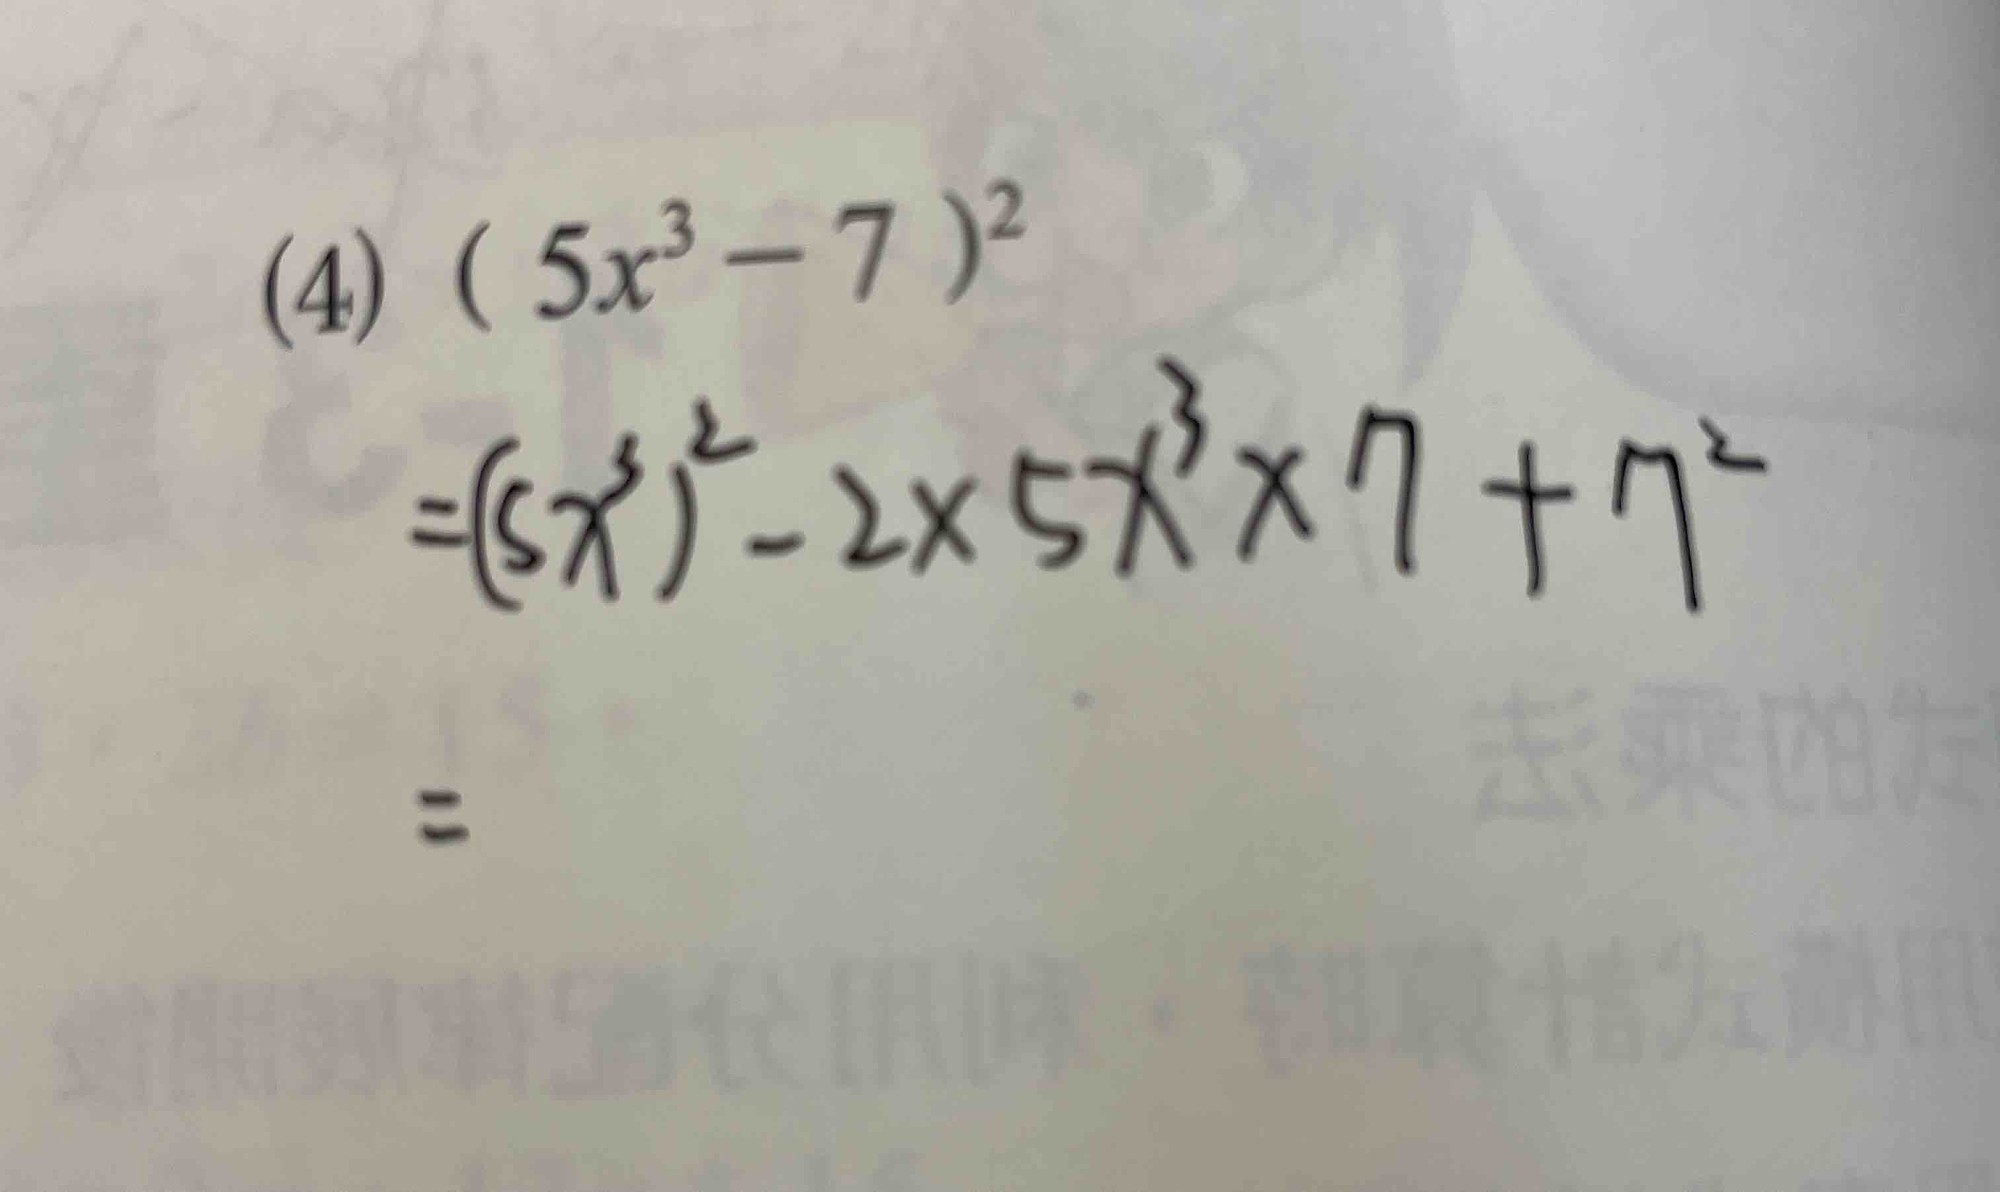 (4) ( 5x³ − 7 )²
=(5x³)² - 2 × 5x³ × 7 + 7²
=